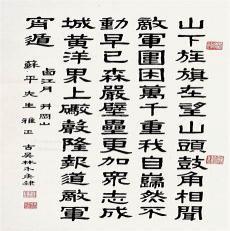 山下旌旗在望山頭鼓角相聞
敵軍圍困萬千重我自巋然不
動早已森嚴壁壘更加眾志成
城黃洋界上礮聲隆報道敵軍
宵遁
西江月 井岡山
蘇平先生雅正
古吳林木庚隸